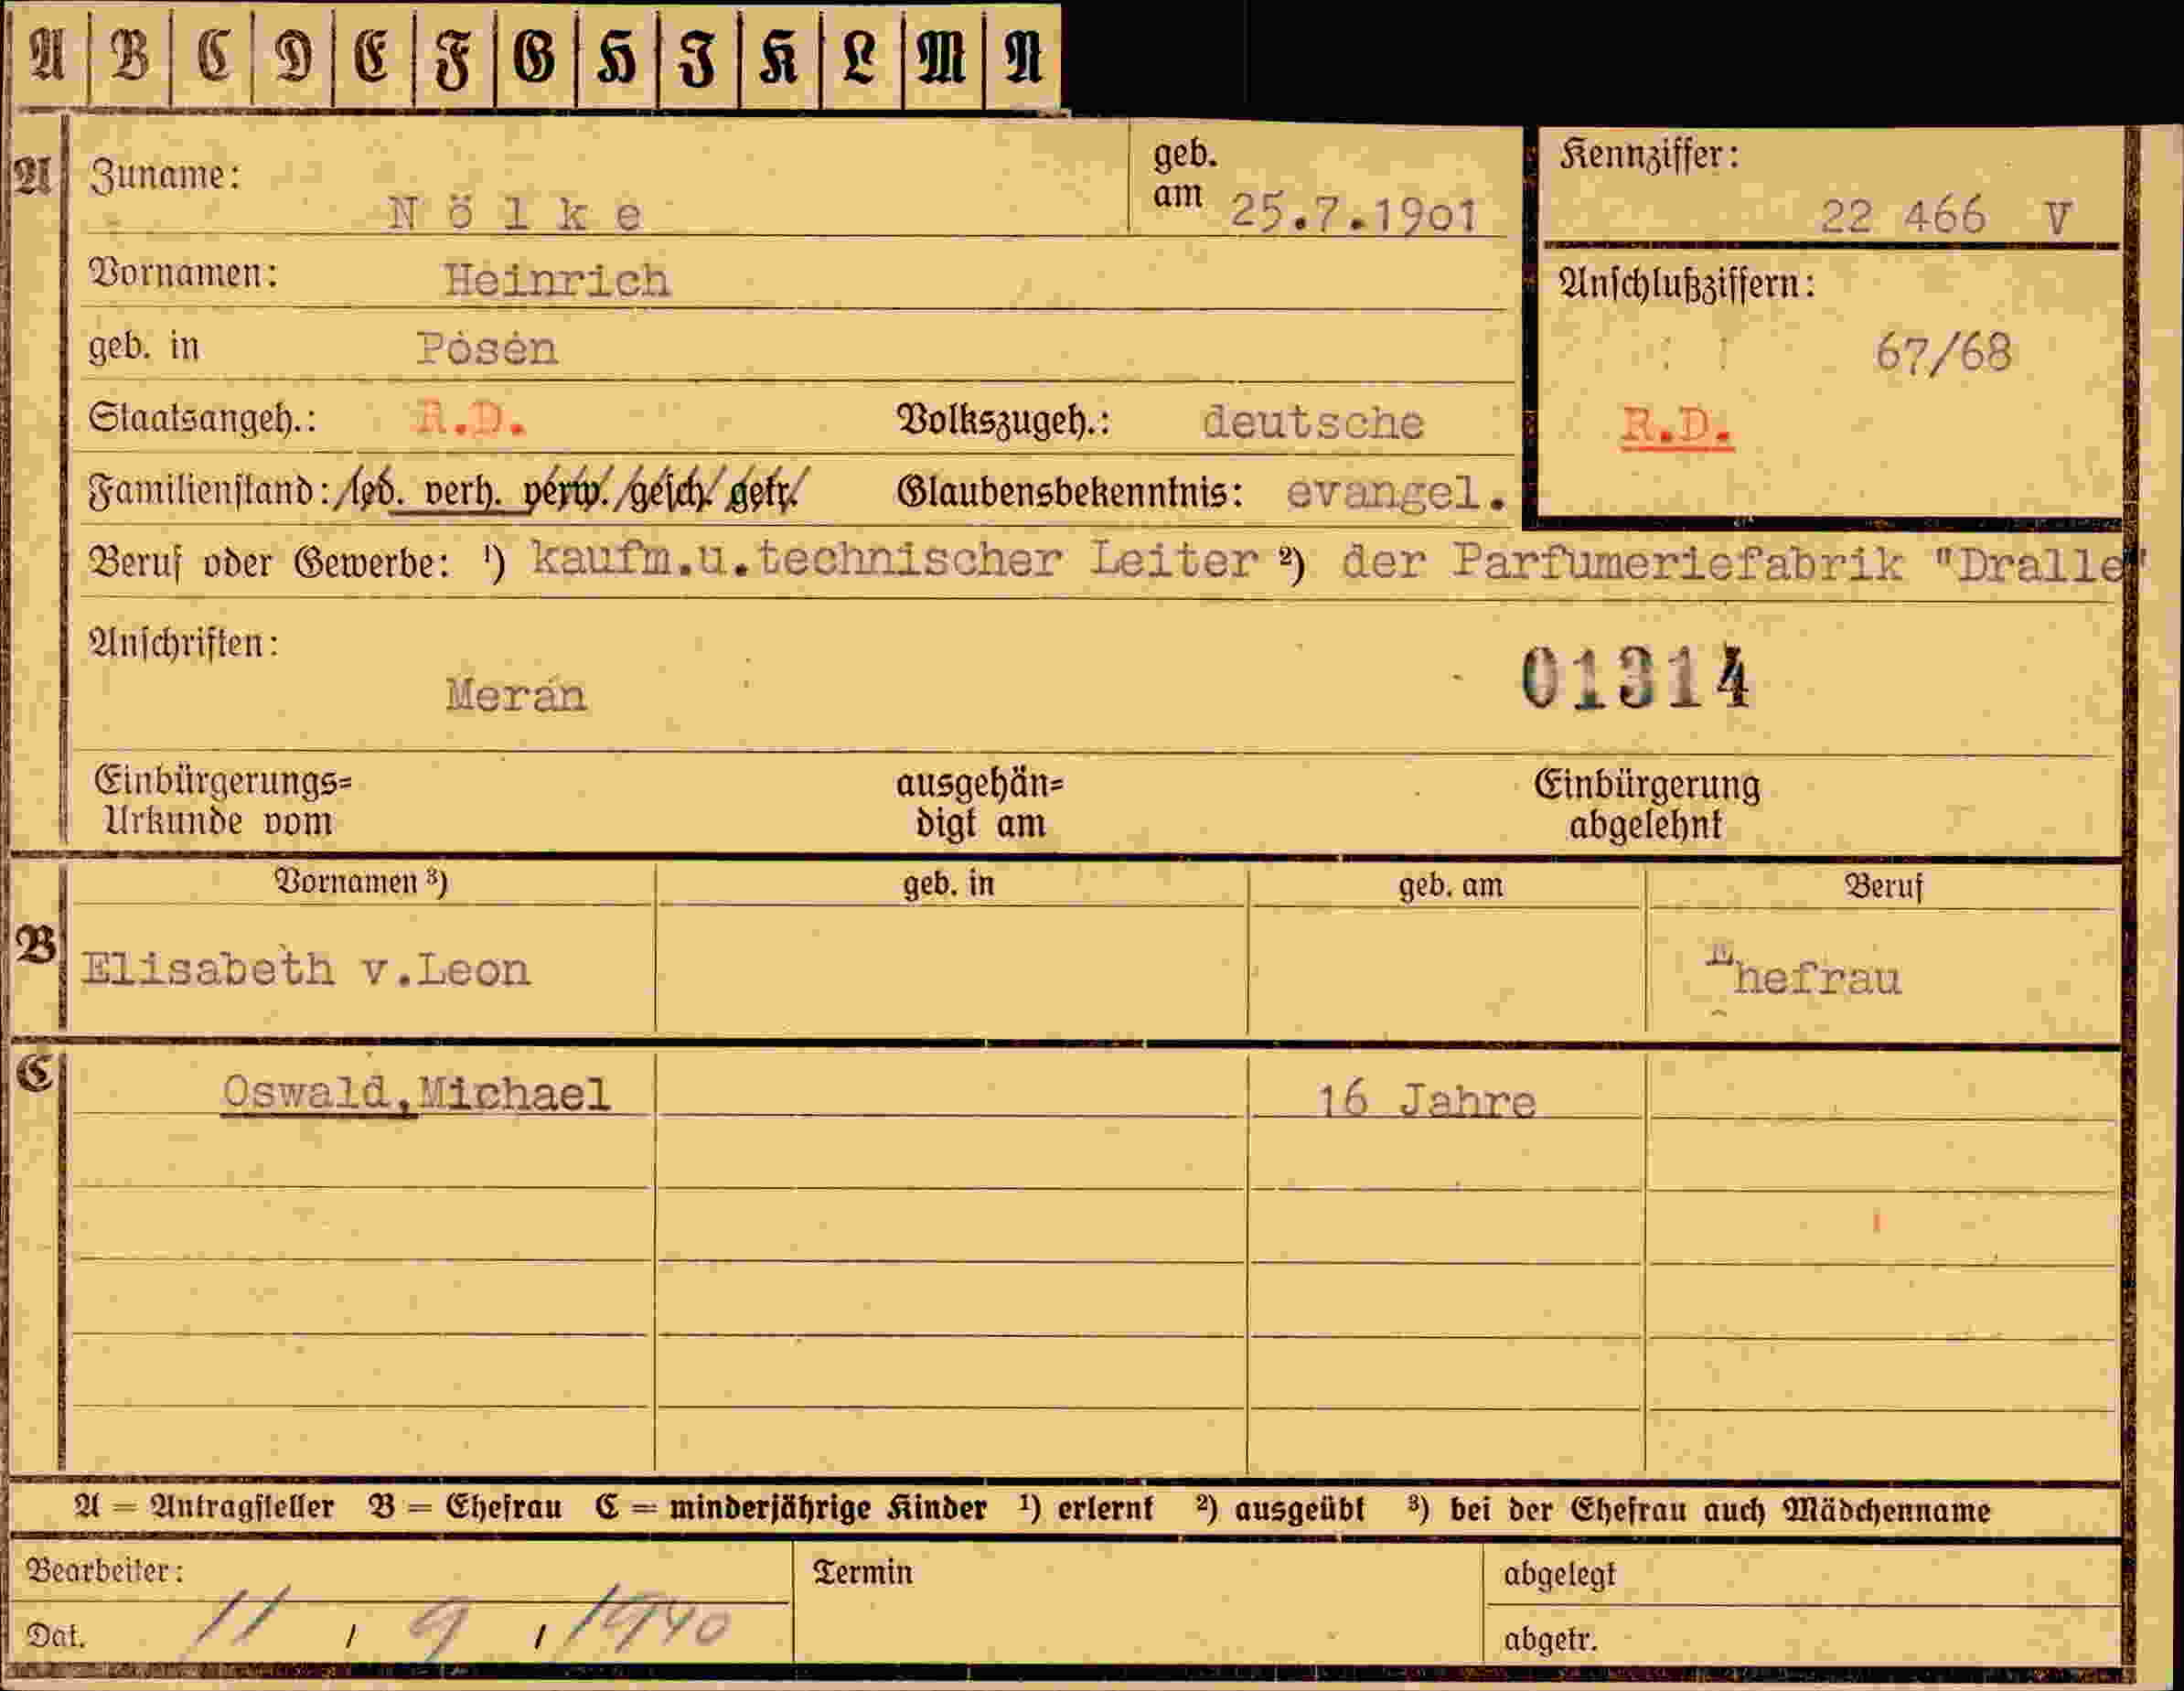 A B C D E F G H I K L M N
A Zuname: Nölke geb. am 25.7.1901
Kennziffer: 22 466 V
Vornamen: Heinrich
Anschlußziffern: 67/68
R.D.
geb. in Posen
Staatsangeh.: R.D. Volkszugeh.: deutsche
Familienstand: led. verh. verw. gesch. getr. Glaubensbekenntnis: evangel.
Beruf oder Gewerbe: ¹) kaufm.u.technischer Leiter ²) der Parfumeriefabrik "Dralle"
Anschriften:
Meran 01314
Einbürgerungs= ausgehän= Einbürgerung
Urkunde vom digt am abgelehnt
Vornamen ³) geb. in geb. am Beruf
B Elisabeth v.Leon Ehefrau
C Oswald,Michael 16 Jahre
A = Antragsteller B = Ehefrau C = minderjährige Kinder ¹) erlernt ²) ausgeübt ³) bei der Ehefrau auch Mädchenname
Bearbeiter: Termin abgelegt
Dat. 11 / 9 / 1940 abgetr.